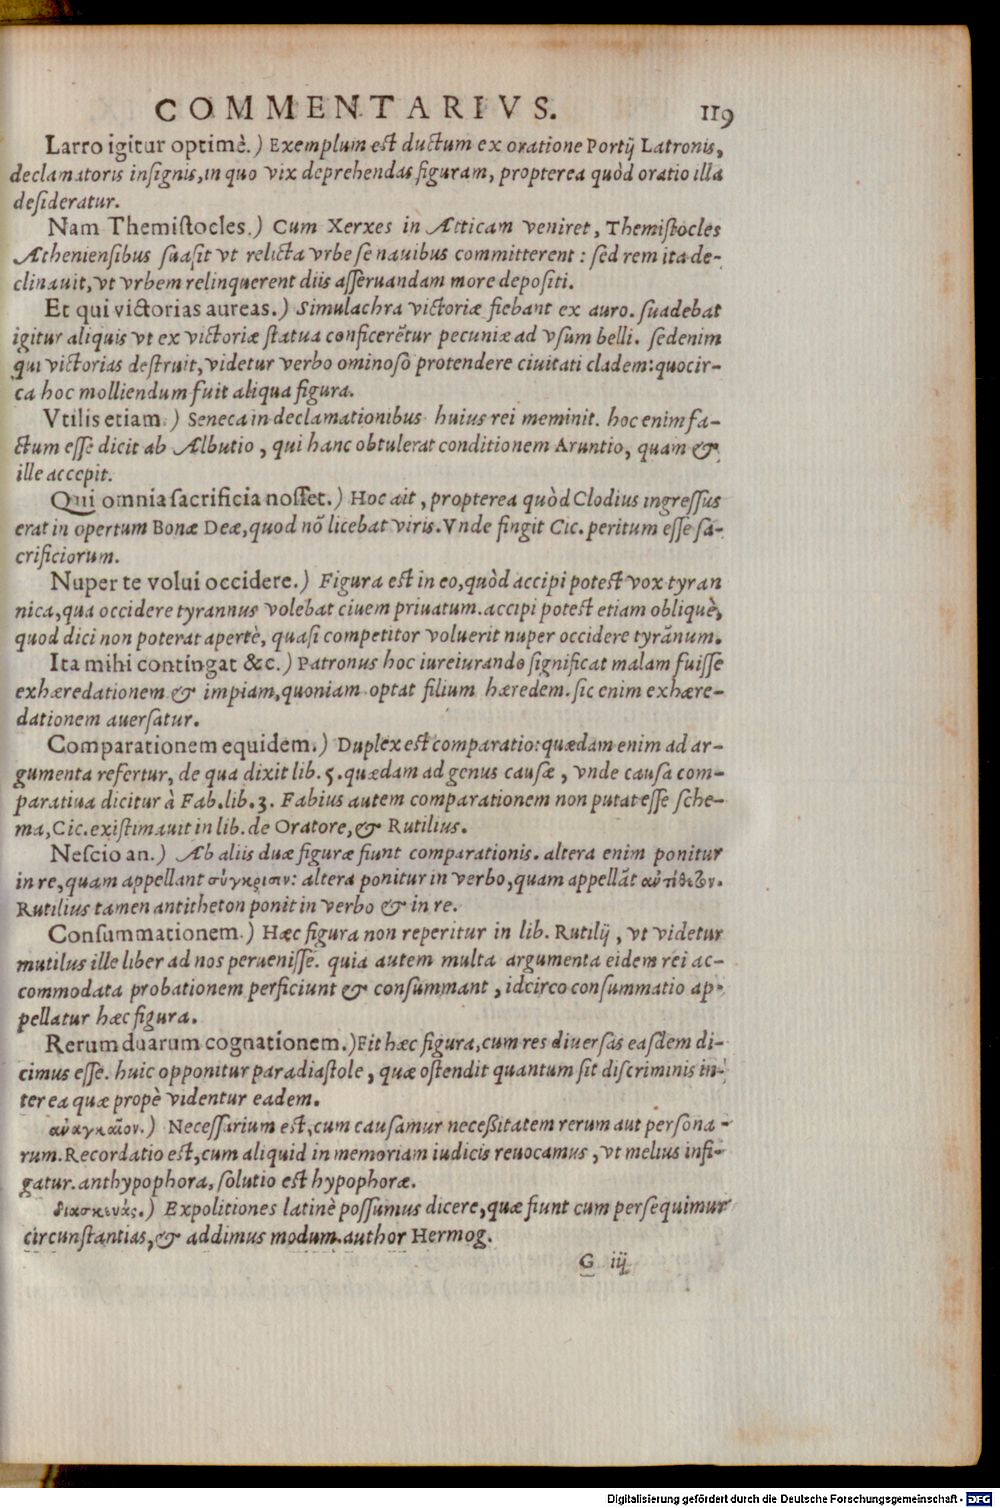 COMMENTARIVS. 119
Larro igitur optimè.) Exemplum est ductum ex oratione Portij Latronis,
declamatoris insignis, in quo vix deprehendas figuram, propterea quòd oratio illa
desideratur.
Nam Themistocles.) Cum Xerxes in Atticam veniret, Themistocles
Atheniensibus suasit vt relicta vrbe se nauibus committerent : sed rem ita de-
clinauit, vt vrbem relinquerent diis asseruandam more depositi.
Et qui victorias aureas.) Simulachra victoriæ fiebant ex auro. suadebat
igitur aliquis vt ex victoriæ statua conficerẽtur pecuniæ ad vsum belli. sed enim
qui victorias destruit, videtur verbo ominoso protendere ciuitati cladem: quocir-
ca hoc molliendum fuit aliqua figura.
Vtilis etiam.) Seneca in declamationibus huius rei meminit. hoc enim fa-
ctum esse dicit ab Albutio, qui hanc obtulerat conditionem Aruntio, quam &
ille accepit.
Qui omnia sacrificia nosset.) Hoc ait, propterea quòd Clodius ingressus
erat in opertum Bonæ Deæ, quod nõ licebat viris. Vnde fingit Cic. peritum esse sa-
crificiorum.
Nuper te volui occidere.) Figura est in eo, quòd accipi potest vox tyran
nica, qua occidere tyrannus volebat ciuem priuatum. accipi potest etiam obliquè,
quod dici non poterat apertè, quasi competitor voluerit nuper occidere tyrãnum.
Ita mihi contingat &c.) Patronus hoc iureiurando significat malam fuisse
exhæredationem & impiam, quoniam optat filium hæredem. sic enim exhære-
dationem auersatur.
Comparationem equidem.) Duplex est comparatio: quædam enim ad ar-
gumenta refertur, de qua dixit lib. 5. quædam ad genus causæ, vnde causa com-
paratiua dicitur à Fab. lib. 3. Fabius autem comparationem non putat esse sche-
ma, Cic. existimauit in lib. de Oratore, & Rutilius.
Nescio an.) Ab aliis duæ figuræ fiunt comparationis. altera enim ponitur
in re, quam appellant σύγκρισιν: altera ponitur in verbo, quam appellãt ἀντίθετον.
Rutilius tamen antitheton ponit in verbo & in re.
Consummationem.) Hæc figura non reperitur in lib. Rutilij, vt videtur
mutilus ille liber ad nos peruenisse. quia autem multa argumenta eidem rei ac-
commodata probationem perficiunt & consummant, idcirco consummatio ap-
pellatur hæc figura.
Rerum duarum cognationem.) Fit hæc figura, cum res diuersas easdem di-
cimus esse. huic opponitur paradiastole, quæ ostendit quantum sit discriminis in-
ter ea quæ propè videntur eadem.
ἀναγκαῖον.) Necessarium est, cum causamur necessitatem rerum aut persona-
rum. Recordatio est, cum aliquid in memoriam iudicis reuocamus, vt melius infi-
gatur. anthypophora, solutio est hypophoræ.
διασκευάς.) Expolitiones latinè possumus dicere, quæ fiunt cum persequimur
circunstantias, & addimus modum. author Hermog.
G iij
Digitalisierung gefördert durch die Deutsche Forschungsgemeinschaft - DFG